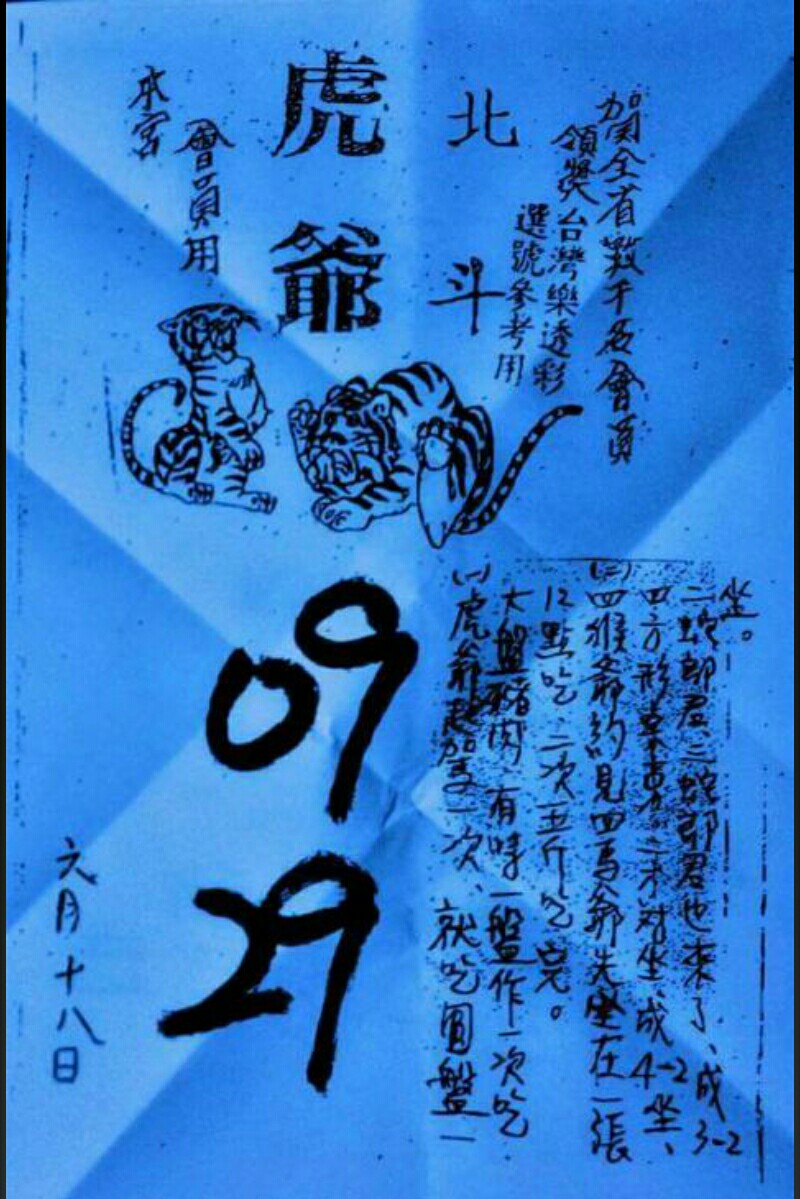 賀全省數千名會員
領獎台灣樂透彩
選號參考用
北斗
虎爺
會員用
本宮
09
29
六月十八日
(一)虎爺起駕一次、就吃圓盤一
大盤豬肉、有時一盤作一次吃
12點吃、二次五斤吃完。
(二)四猴爺約見四馬爺先坐在一張
四方形桌旁對坐、成4-2坐、
二蛇郎君、三蛇郎君也來了、成3-2
坐。